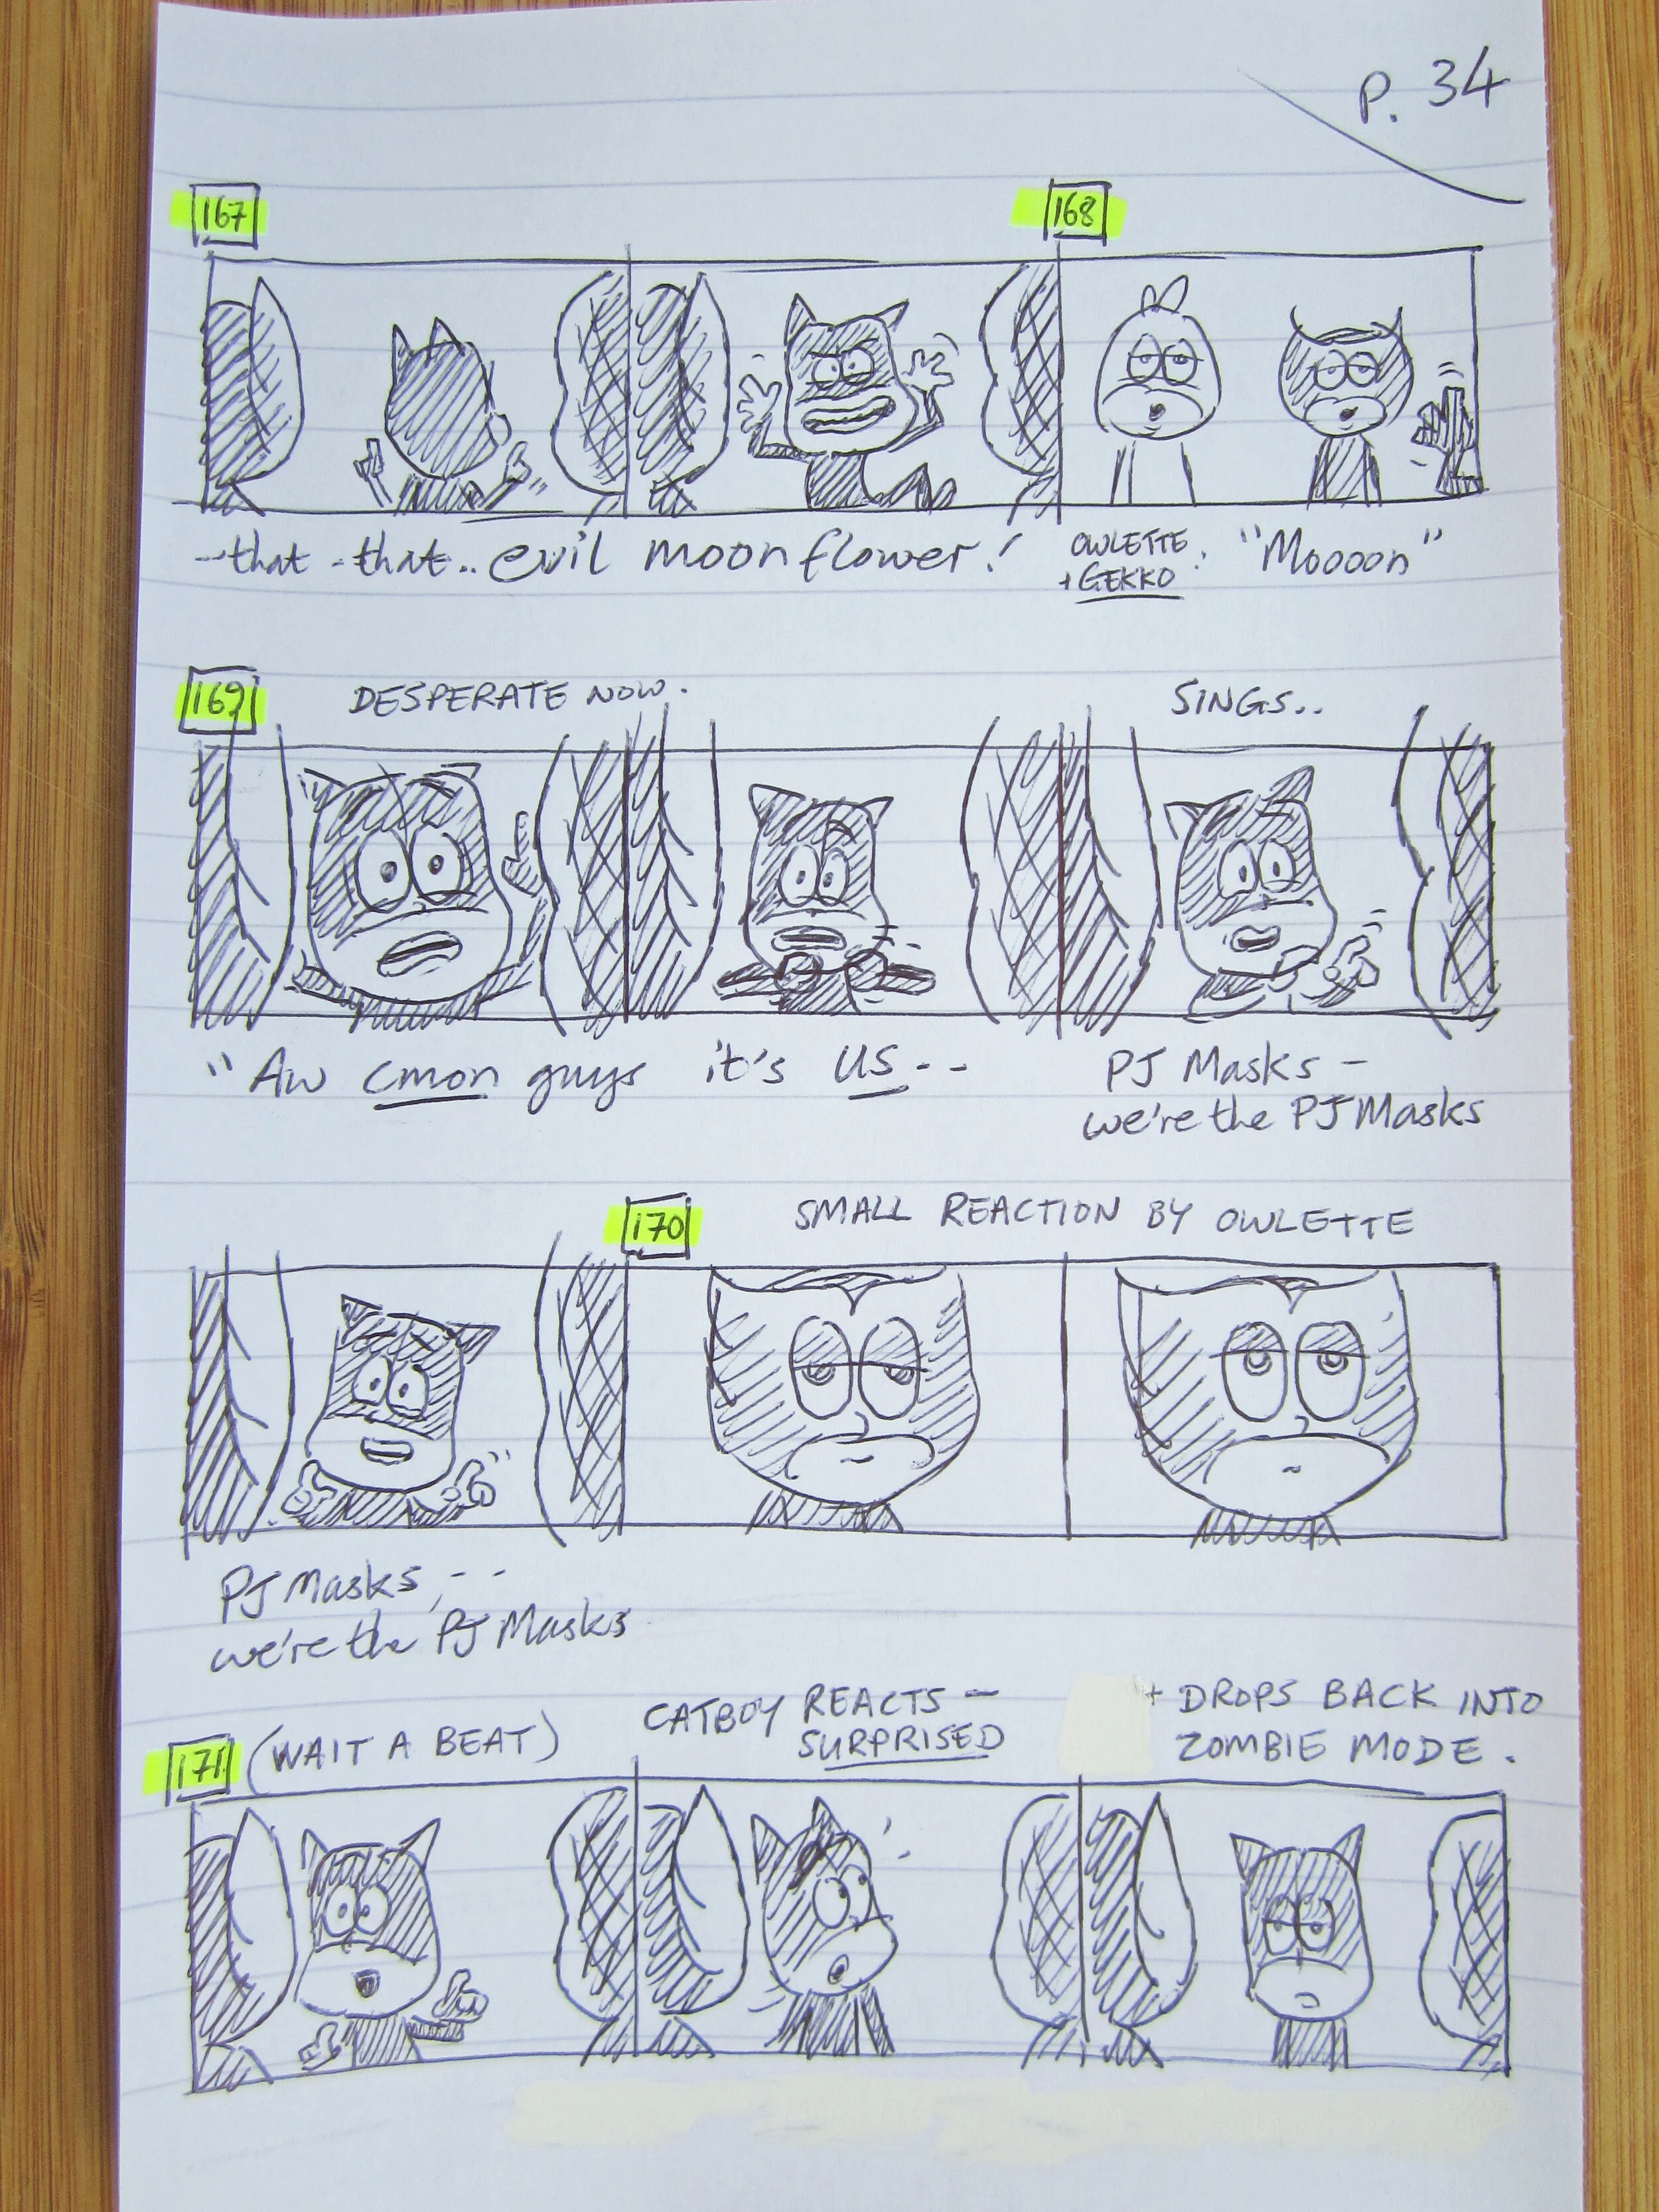 P. 34
167
168
--that -that.. evil moonflower!
OWLETTE
+ GEKKO : "Moooon"
169
DESPERATE NOW.
SINGS..
"Aw cmon guys it's US--
PJ Masks -
we're the PJ Masks
170
SMALL REACTION BY OWLETTE
PJ Masks, --
we're the PJ Masks
171
(WAIT A BEAT)
CATBOY REACTS -
SURPRISED
+ DROPS BACK INTO
ZOMBIE MODE.